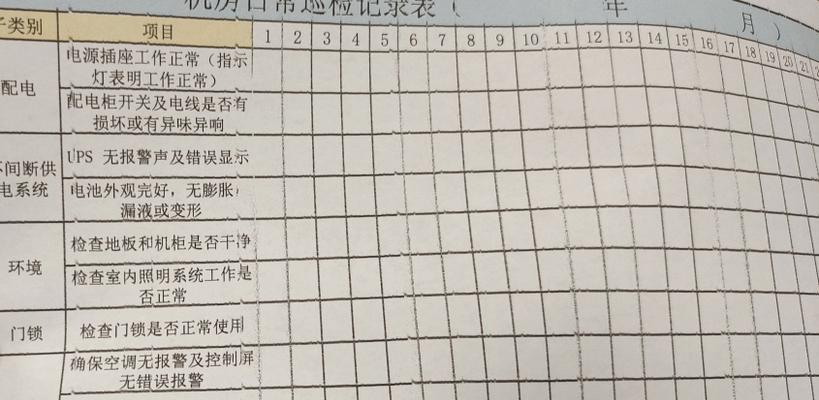 机房日常巡检记录表（ 年 月）
子类别 项目 1 2 3 4 5 6 7 8 9 10 11 12 13 14 15 16 17 18 19 20 21
配电
电源插座工作正常（指示
灯表明工作正常）
配电柜开关及电线是否有
损坏或有异味异响
不间断供
电系统
UPS 无报警声及错误显示
电池外观完好，无膨胀，
漏液或变形
环境
检查地板和机柜是否干净
检查室内照明系统工作是
否正常
门锁
检查门锁是否正常使用
确保空调无报警及控制屏
无错误报警